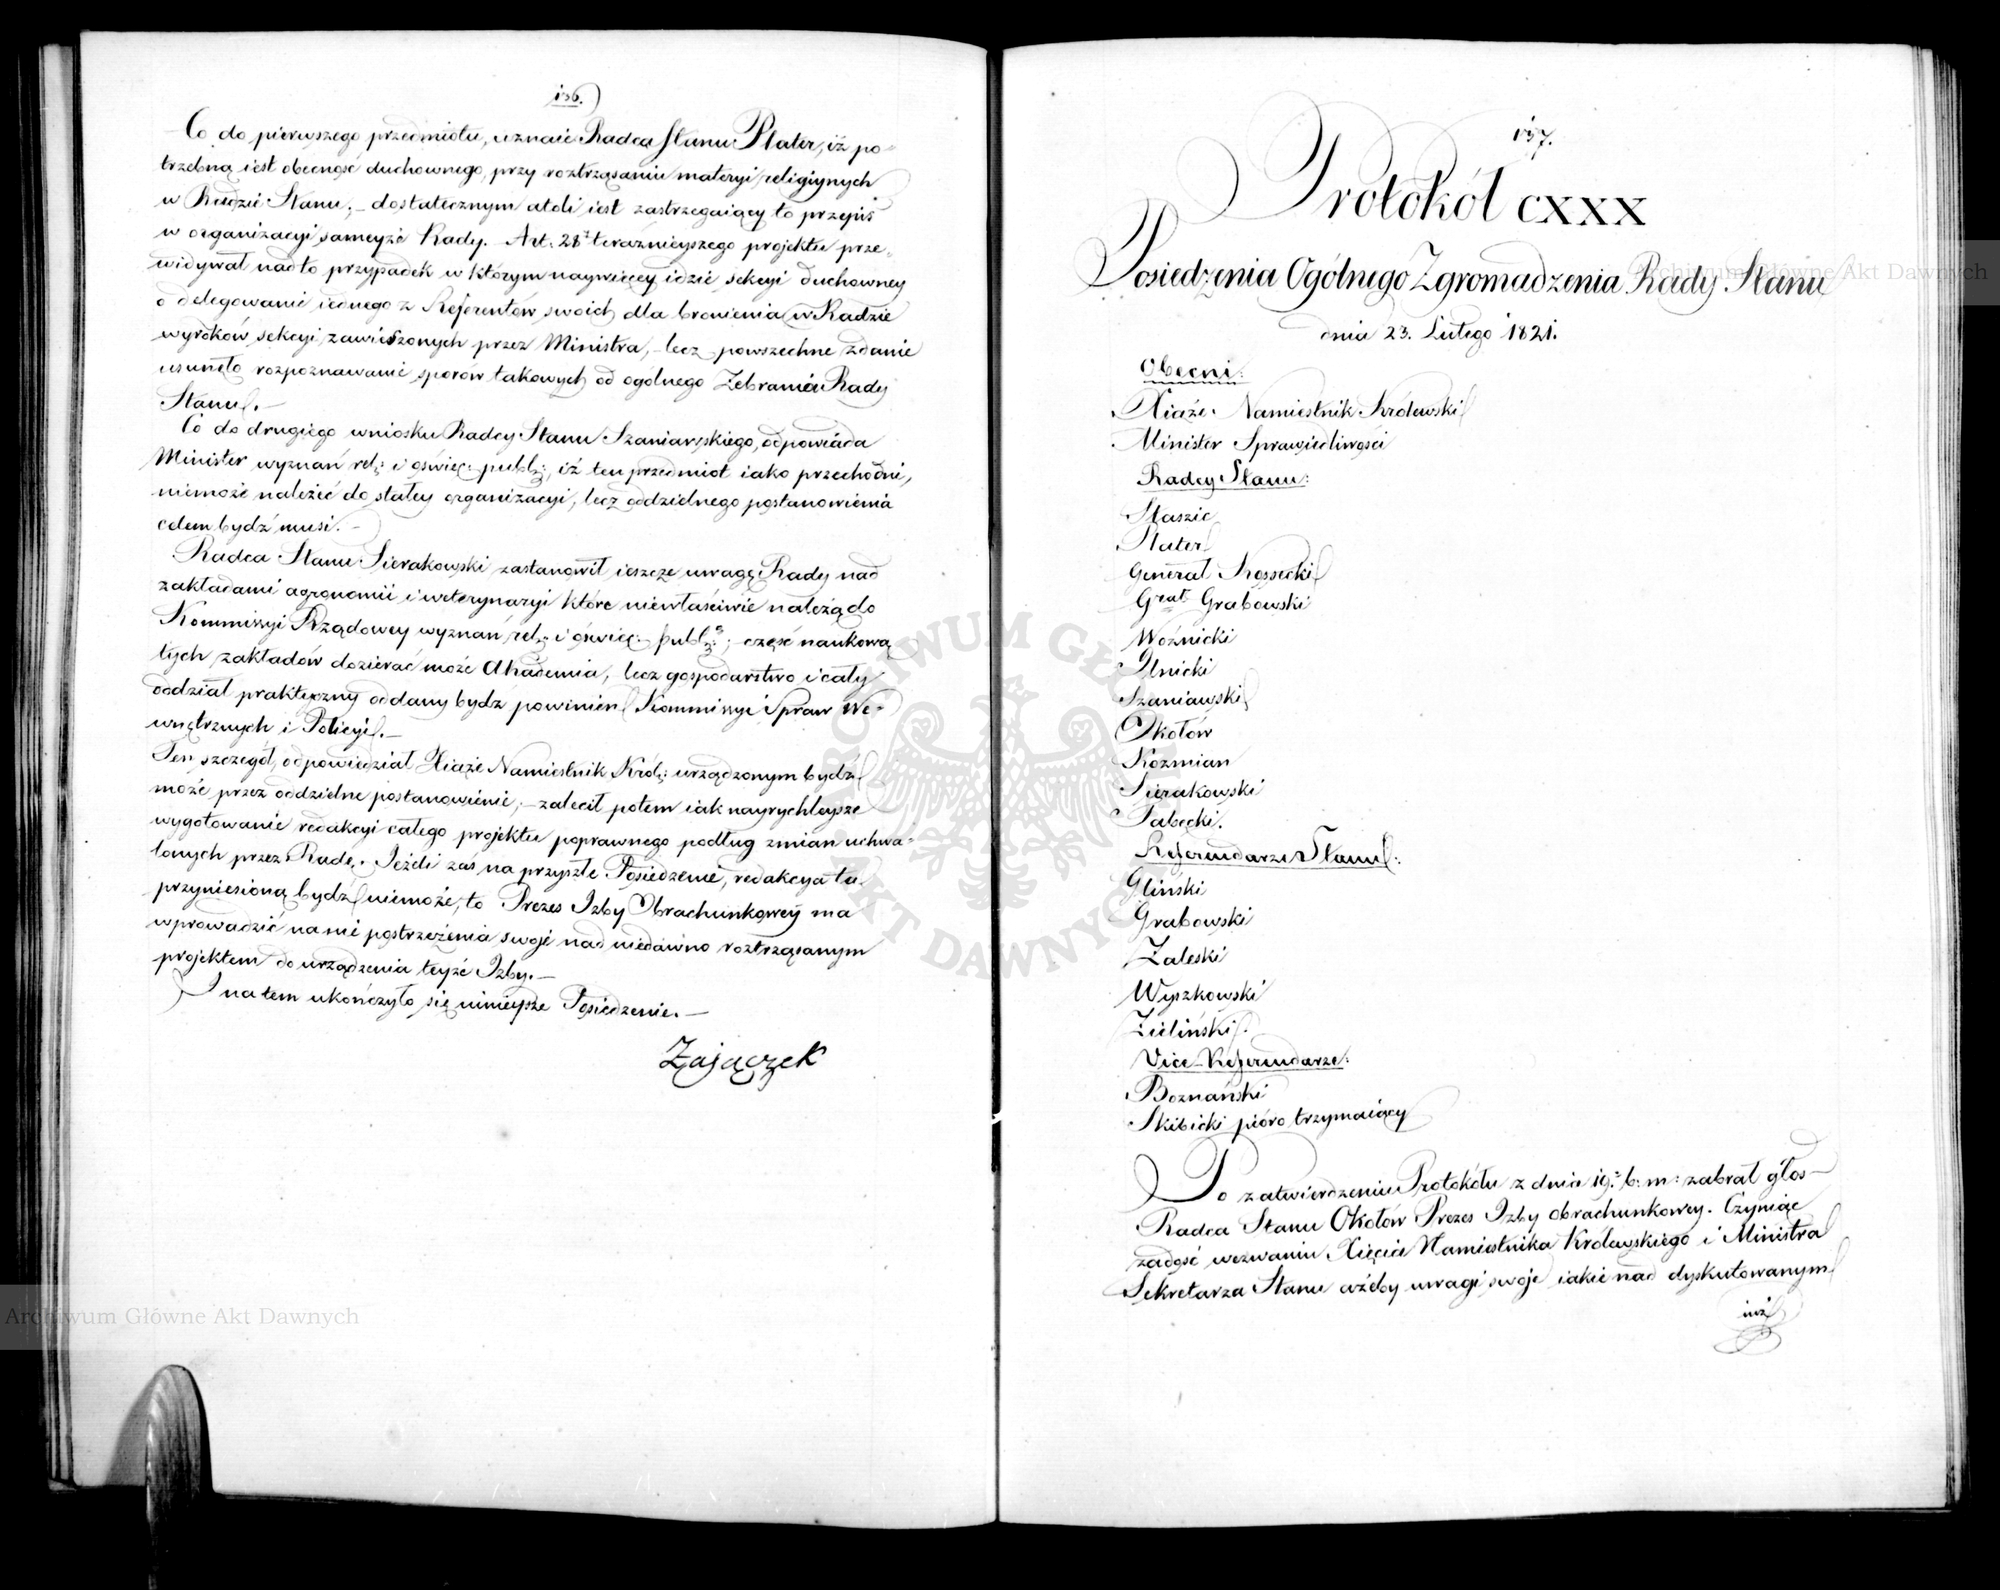 136.
Co do pierwszego przedmiotu, uznaie Radca Stanu Plater, iż po-
trzebną iest obecność duchownego, przy roztrząsaniu materyi religiynych
w Radzie Stanu; – dostatecznym atoli iest zastrzegaiący to przepis
w organizacyi sameyże Rady. – Art: 28 teraznieyszego projektu prze-
widywał nadto przypadek w którym naywięcey idzie sekcyi duchowney
o delegowanie iednego z Referentów swoich dla bronienia w Radzie
wyroków sekcyi zawieszonych przez Ministra, – lecz powszechne zdanie
usunęło rozpoznawanie sporów takowych od ogólnego Zebrania Rady
Stanu. –
Co do drugiego wniosku Radcy Stanu Szaniawskiego, odpowiada
Minister wyznań rel: i oświec: publ:, iż ten przedmiot iako przechodni,
niemoże należeć do stałey organizacyi, lecz oddzielnego postanowienia
celem bydź musi. –
Radca Stanu Sierakowski zastanowił ieszcze uwagę Rady nad
zakładami agronomii i weterynaryi które niewłaściwie należą do
Kommissyi Rządowey wyznań rel: i oświec: publ:; część naukową
tych zakładów dozierać może Akademia, lecz gospodarstwo i cały
oddział praktyczny oddany bydź powinien Kommissyi Spraw We-
wnętrznych i Policyi. –
Ten szczegół, odpowiedział Xiąże Namiestnik Król: urządzonym bydź
może przez oddzielne postanowienie; – zalecił potem iak nayrychleysze
wygotowanie redakcyi całego projektu poprawnego podług zmian uchwa-
lonych przez Radę. Jeżeli zaś na przyszłe Posiedzenie, redakcya ta
przyniesioną bydź niemoże, to Prezes Izby Obrachunkowey ma
wprowadzić na nie postrzeżenia swoje nad niedawno roztrząsanym
projektem do urządzenia teyże Izby. –
I na tem ukończyło się ninieysze Posiedzenie. –
Zajączek
137.
Protokół CXXX
Posiedzenia Ogólnego Zgromadzenia Rady Stanu
dnia 23. Lutego 1821.
Obecni:
Xiąże Namiestnik Królewski
Minister Sprawiedliwości
Radcy Stanu:
Staszic
Plater
Generał Kossecki
Grał Grabowski
Woźnicki
Ilnicki
Szaniawski
Okołów
Koźmian
Sierakowski
Tabęcki.
Referendarze Stanu:
Gliński
Grabowski
Zaleski
Wyszkowski
Zieliński.
Vice-Referendarze:
Boznański
Skibicki pióro trzymaiący
Po zatwierdzeniu Protokółu z dnia 19. b: m: zabrał głos –
Radca Stanu Okołów Prezes Izby obrachunkowey. Czyniąc
zadość wezwaniu Xięcia Namiestnika Królewskiego i Ministra
Sekretarza Stanu ażeby uwagi swoje iakie nad dyskutowanym
iuż
Archiwum Główne Akt Dawnych
Archiwum Główne Akt Dawnych
ARCHIWUM GŁÓWNE AKT DAWNYCH